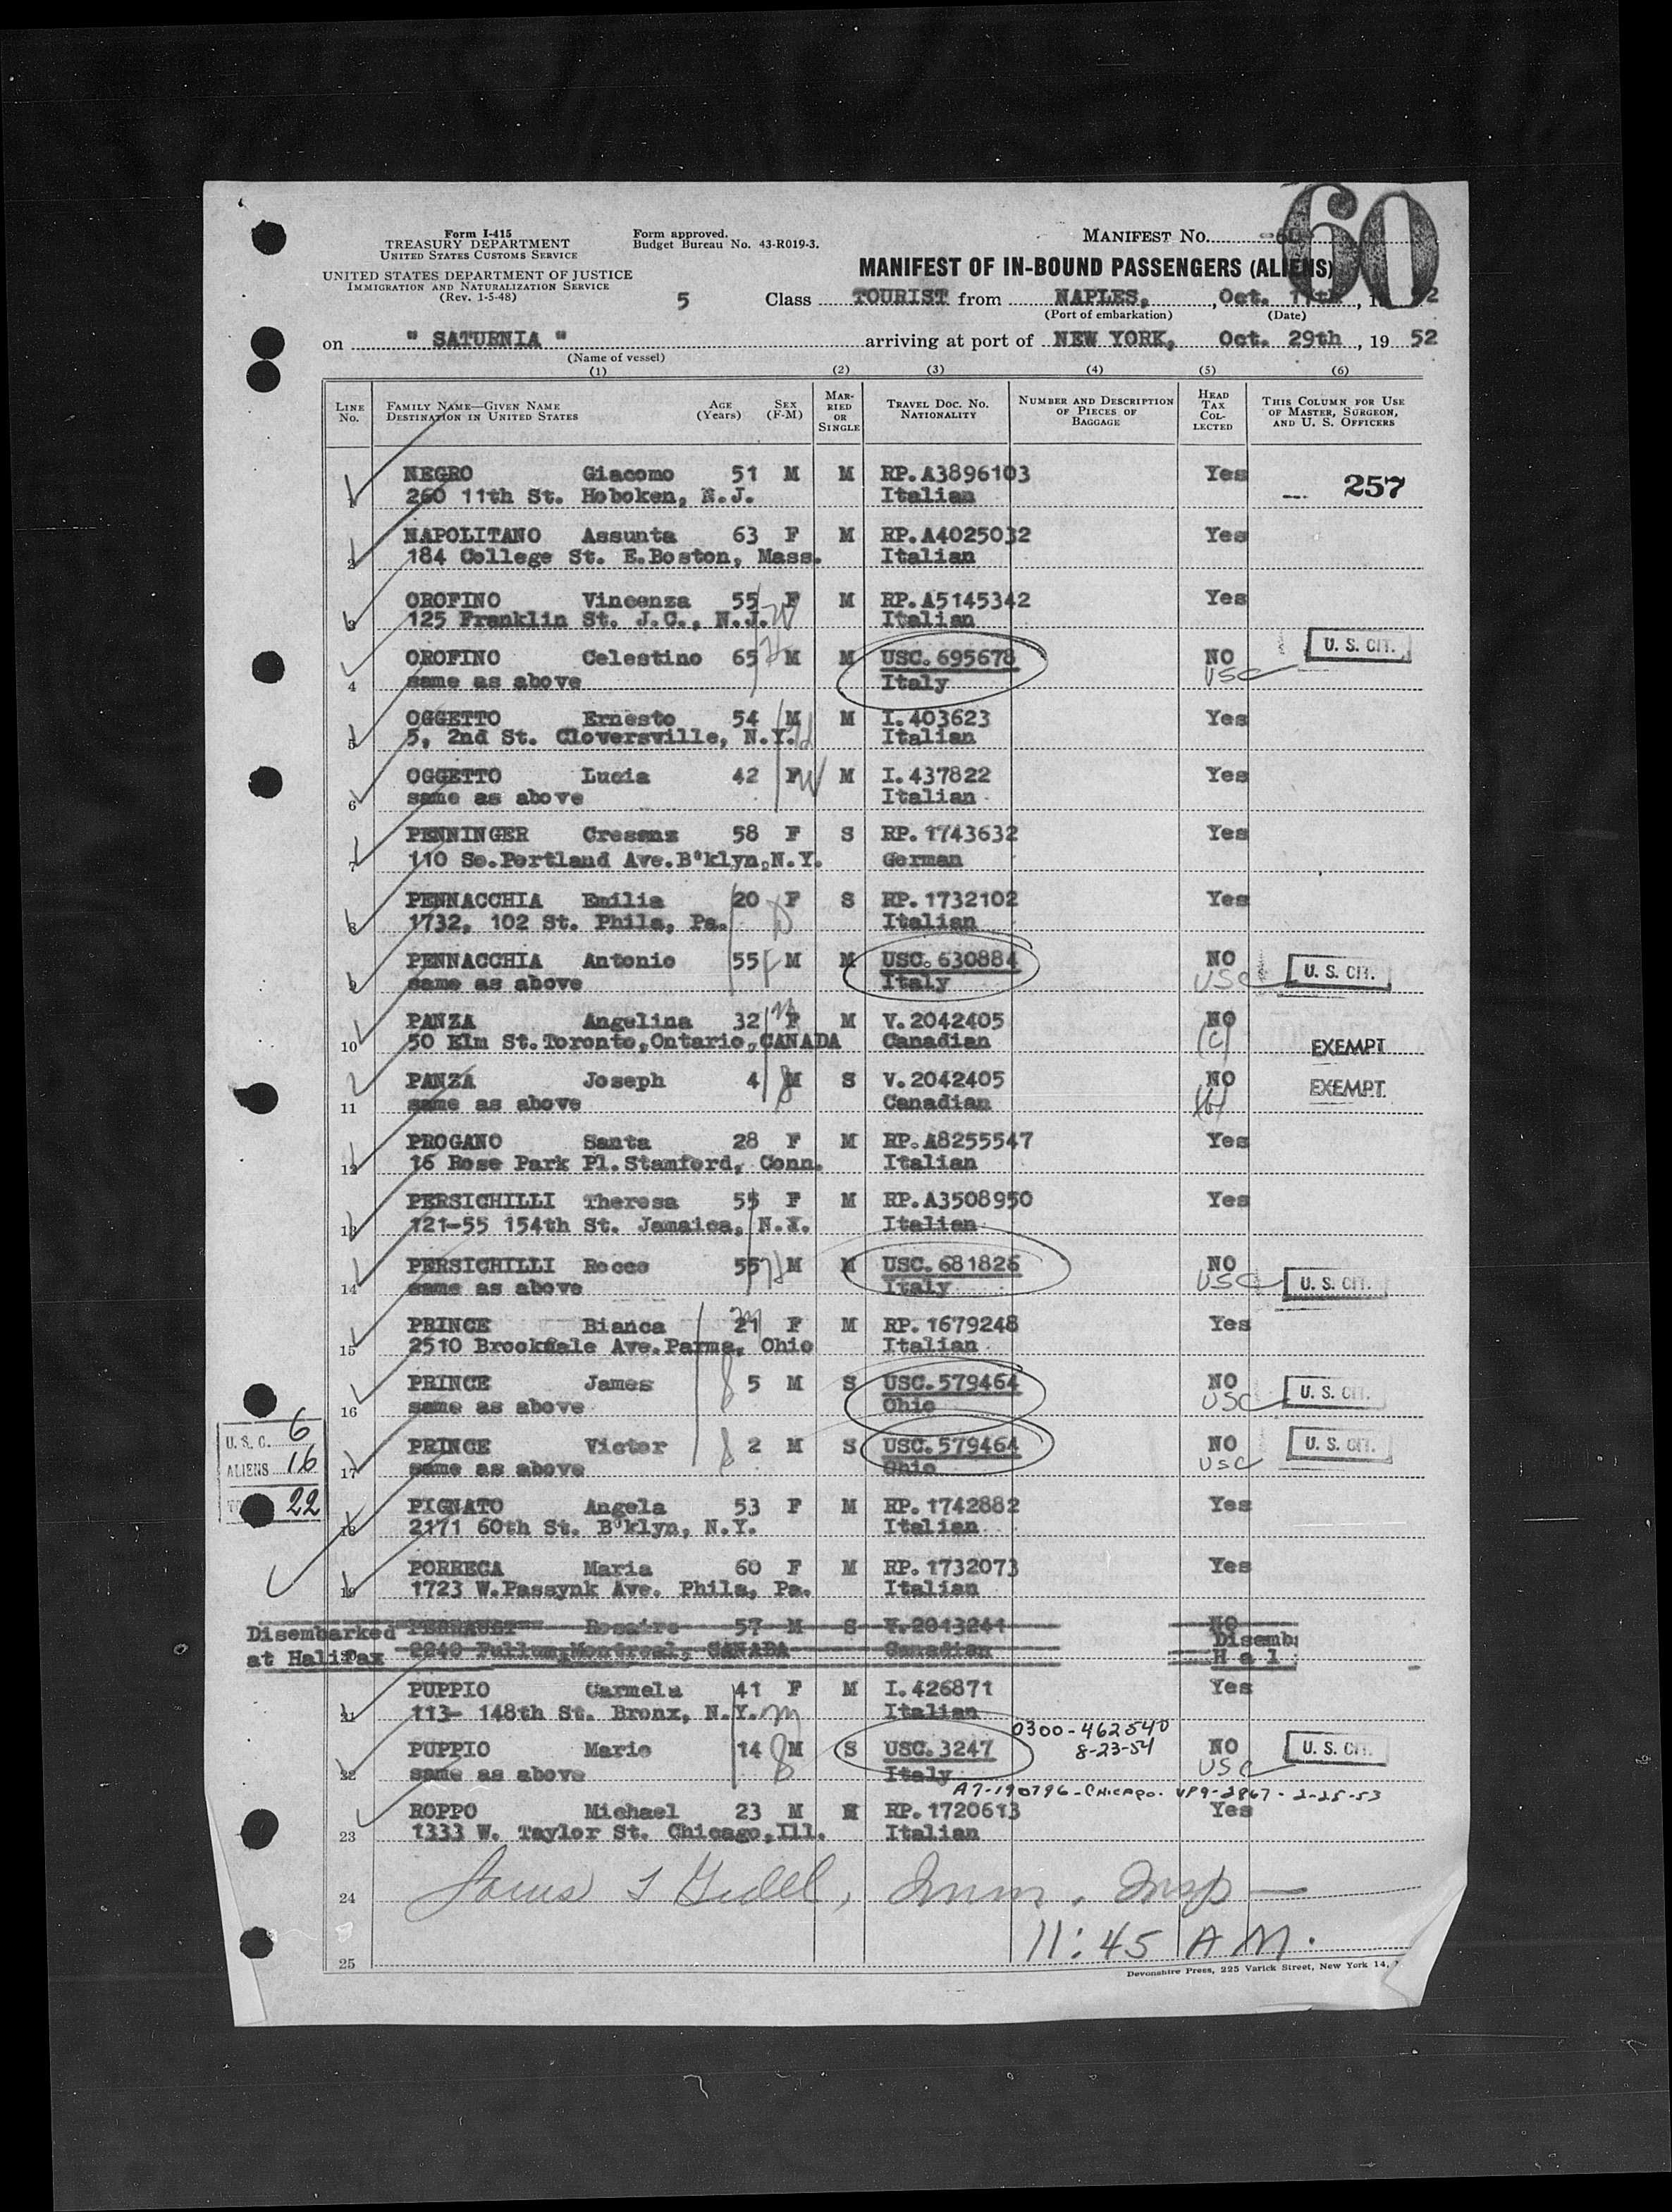 60
Form I-415
TREASURY DEPARTMENT
UNITED STATES CUSTOMS SERVICE
Form approved.
Budget Bureau No. 43-R019-3.
MANIFEST NO.
UNITED STATES DEPARTMENT OF JUSTICE
IMMIGRATION AND NATURALIZATION SERVICE
(Rev. 1-5-48)
MANIFEST OF IN-BOUND PASSENGERS (ALIENS)
5 Class TOURIST from NAPLES, Oct.
(Port of embarkation) (Date)
on " SATURNIA " arriving at port of NEW YORK, Oct. 29th, 19 52
(Name of vessel)
(1) (2) (3) (4) (5) (6)
LINE NO. FAMILY NAME—GIVEN NAME DESTINATION IN UNITED STATES AGE (Years) SEX (F-M) MARRIED OR SINGLE TRAVEL DOC. NO. NATIONALITY NUMBER AND DESCRIPTION OF PIECES OF BAGGAGE HEAD TAX COLLECTED THIS COLUMN FOR USE OF MASTER, SURGEON, AND U. S. OFFICERS
NEGRO Giacomo 51 M M RP. A3896103 Yes 257
260 11th St. Hoboken, N.J. Italian
NAPOLITANO Assunta 63 F M RP. A4025032 Yes
2 184 College St. E.Boston, Mass. Italian
OROFINO Vincenza 55 F M RP. A5145342 Yes
3 125 Franklin St. J.C., N.J. W Italian
OROFINO Celestino 65 H M M USC. 695678 NO U. S. CIT.
4 same as above Italy USC
OGGETTO Ernesto 54 M M I. 403623 Yes
5 5, 2nd St. Cloversville, N.Y. H Italian
OGGETTO Lucia 42 F W M I. 437822 Yes
6 same as above Italian
PENNINGER Cresenz 58 F S RP. 1743632 Yes
7 110 So.Portland Ave.B'klyn,N.Y. German
PENNACCHIA Emilia 20 F S RP. 1732102 Yes
8 1732, 102 St. Phila, Pa. D Italian
PENNACCHIA Antonio 55 F M M USC. 630884 NO U. S. CIT.
9 same as above Italy USC
PANZA Angelina 32 M F M V. 2042405 NO
10 50 Elm St.Toronto,Ontario,CANADA Canadian (c) EXEMPT
PANZA Joseph 4 M S V. 2042405 NO EXEMPT
11 same as above Canadian
PROGANO Santa 28 F M RP. A8255547 Yes
12 16 Rose Park Pl.Stamford, Conn. Italian
PERSICHILLI Theresa 55 F M RP. A3508950 Yes
13 121-55 154th St. Jamaica, N.Y. Italian
PERSICHILLI Rocco 55 H M M USC. 681826 NO
14 same as above Italy USC U. S. CIT.
PRINCE Bianca 21 F M RP. 1679248 Yes
15 2510 Brookdale Ave.Parma, Ohio Italian
PRINCE James 5 M S USC. 579464 NO U. S. CIT.
16 same as above Ohio USC
U. S. C. 6
PRINCE Victor 2 M S USC. 579464 NO U. S. CIT.
ALIENS 16
17 same as above Ohio USC
22
PIGNATO Angela 53 F M RP. 1742882 Yes
18 2171 60th St. B'klyn, N.Y. Italian
PORRECA Maria 60 F M RP. 1732073 Yes
19 1723 W.Passynk Ave. Phila, Pa. Italian
Disembarked Rosaire 57 M S V. 2043241 NO Disemb:
at Halifax 2240 Fullum,Montreal, CANADA Canadian H a l
PUPPIO Carmela 41 F M I. 426871 Yes
21 113- 148th St. Bronx, N.Y. M Italian
0300-462540
PUPPIO Mario 14 M S USC. 3247 8-23-54 NO U. S. CIT.
22 same as above Italy USC
A7-190796-CHICAGO. VP9-2867-2-25-53
ROPPO Michael 23 M M RP. 1720613 Yes
23 1333 W. Taylor St. Chicago,Ill. Italian
24 Imm. Insp
11:45 A M.
25
Devonshire Press, 225 Varick Street, New York 14,